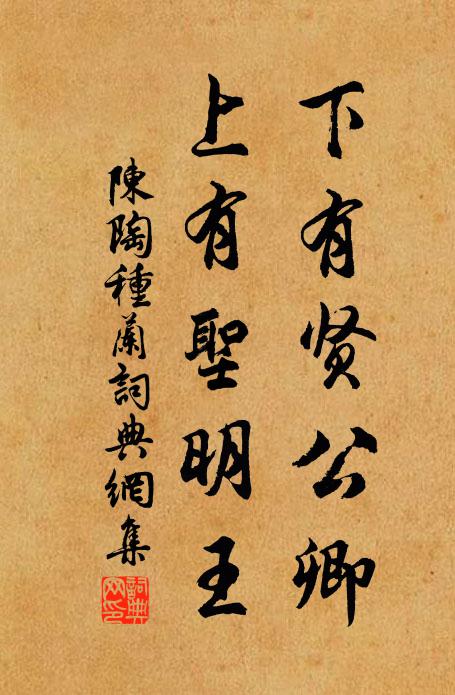 下有贤公卿
上有聖明王
陳陶種蘭詞典網集
詞典网印